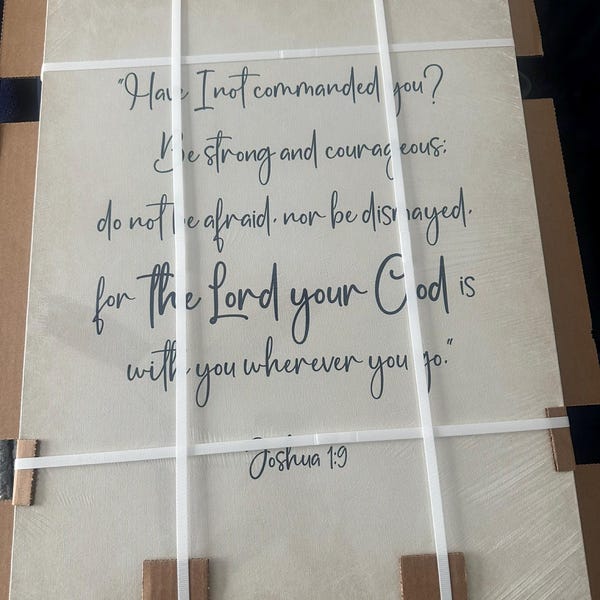 "Have I not commanded you?
Be strong and courageous;
do not be afraid, nor be dismayed,
for the Lord your God is
with you wherever you go."
Joshua 1:9